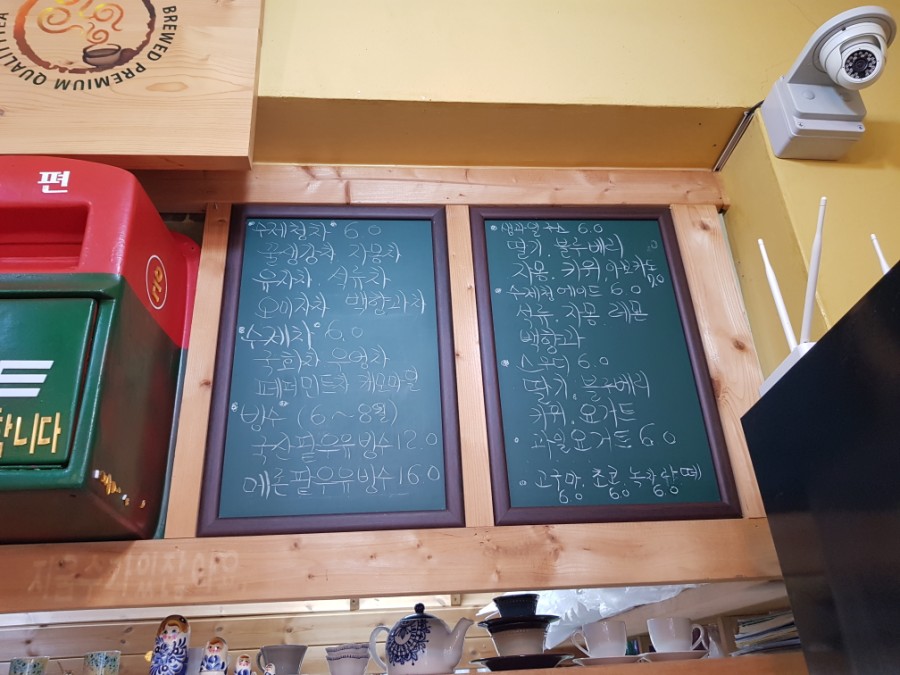 BREWED PREMIUM QUALITY TEA
편
합니다
수제청차 6.0
꿀생강차 자몽차
유자차 석류차
오미자차 백향과차
수제차 6.0
국화차 우엉차
페퍼민트차 캐모마일
빙수 (6~8월)
국산팥우유빙수 12.0
메론팥우유빙수 16.0
생과일쥬스 6.0
딸기. 블루베리
자몽. 키위 아보카도
수제청에이드 6.0
석류. 자몽. 레몬
백향과
스무디 6.0
딸기. 블루베리
키위. 요거트
과일요거트 6.0
고구마. 초코. 녹차라떼
6.0 6.0 6.0